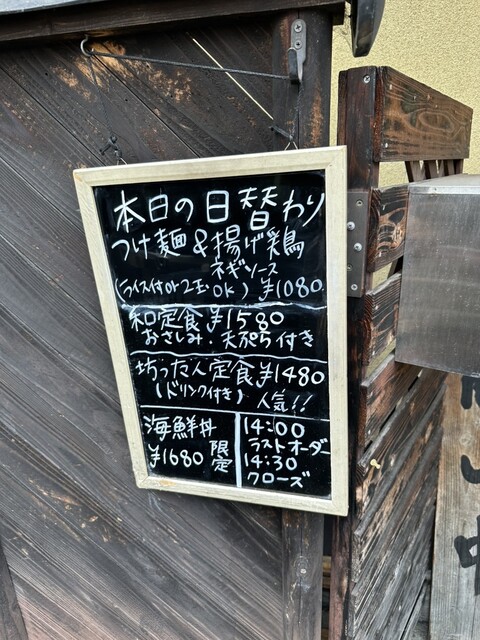 本日の日替わり
つけ麺&揚げ鶏
ネギソース
(ライス付or2玉OK) ¥1080
和定食¥1580
おさしみ・天ぷら付き
坊っちゃん定食¥1480
(ドリンク付き) 人気!!
海鮮丼
¥1680 限定
14:00
ラストオーダー
14:30
クローズ